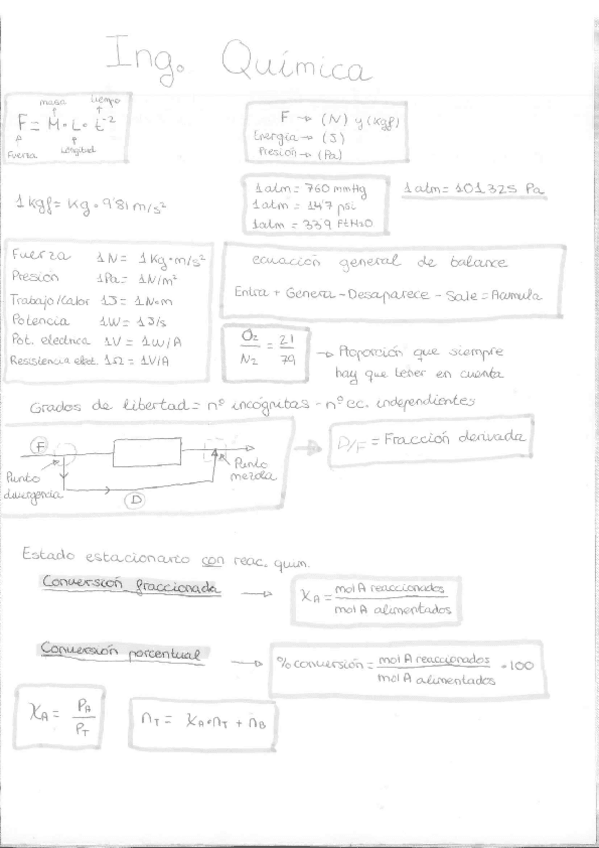 Ing. Química
masa tiempo
F = M · L · t⁻²
Fuerza Longitud
F → (N) y (Kgf)
Energía → (J)
Presión → (Pa)
1 kgf = Kg · 9'81 m/s²
1 atm = 760 mmHg
1 atm = 14'7 psi
1 atm = 33'9 FtH2O
1 atm = 101.325 Pa
Fuerza 1N = 1 Kg·m/s²
Presión 1Pa = 1N/m²
Trabajo/Calor 1J = 1N·m
Potencia 1W = 1J/s
Pot. electrica 1V = 1W/A
Resistencia elect. 1Ω = 1V/A
ecuación general de balance
Entra + Genera - Desaparece - Sale = Acumula
O2/N2 = 21/79 → Proporción que siempre
hay que tener en cuenta
Grados de libertad = nº incógnitas - nº ec. independientes
F
Punto
divergencia
D
Punto
mezcla
D/F = Fracción derivada
Estado estacionario con reac. quim.
Conversión fraccionada → XA = mol A reaccionados / mol A alimentados
Conversión porcentual → % conversión = mol A reaccionados / mol A alimentados · 100
XA = PA / PT
nT = XA · nT + nB